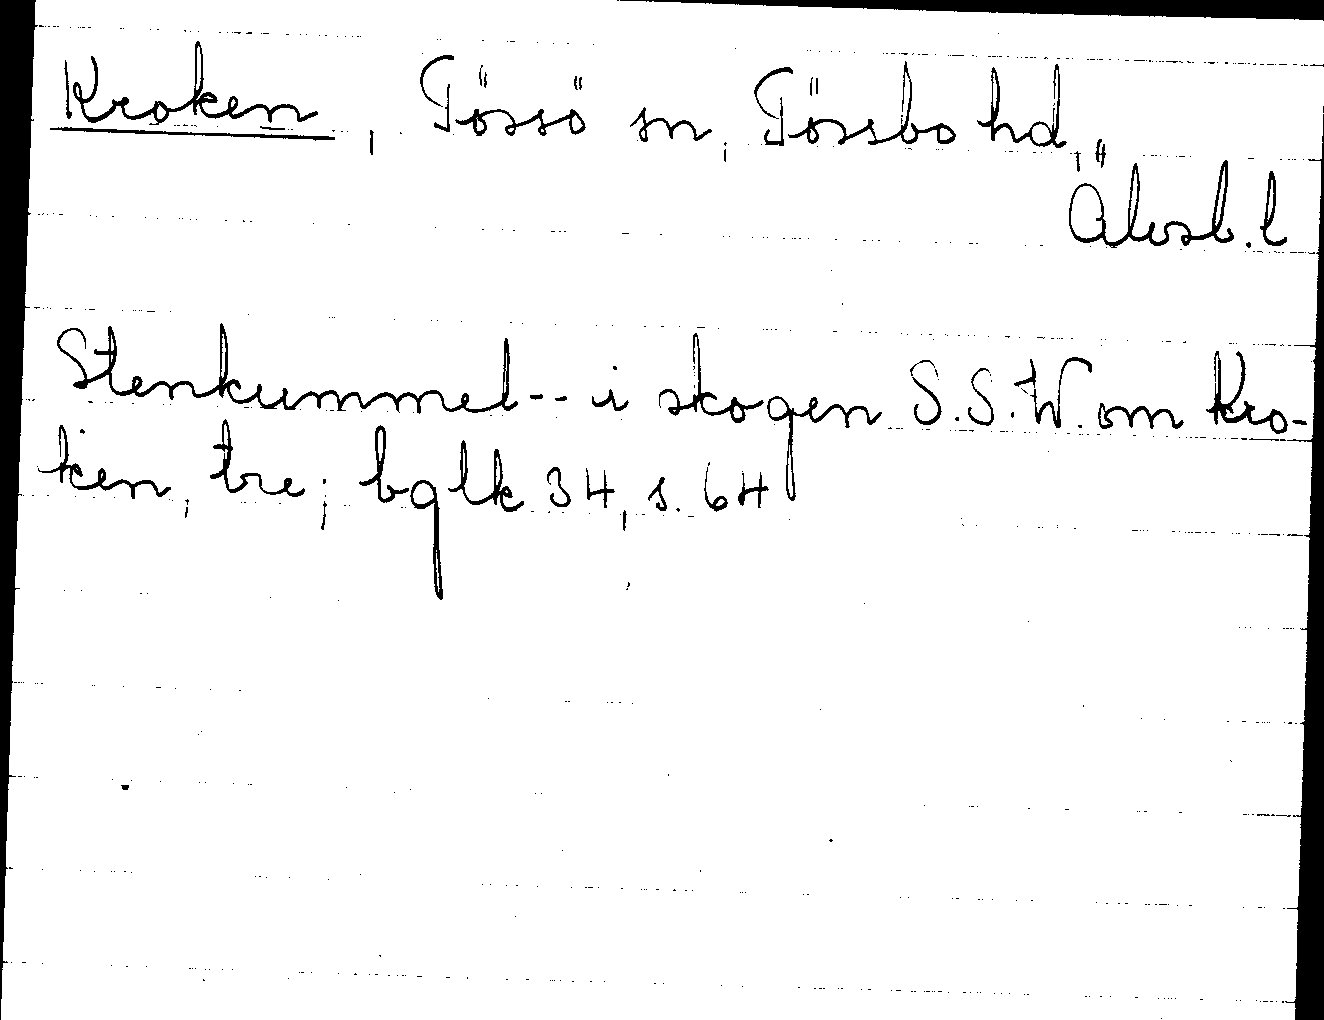 Kroken, Tössö sn, Tössbo hd,
Älvsb. l
Stenkummel -- i skogen S.S.W. om Kro-
ken, tre; bglk 34, s. 64